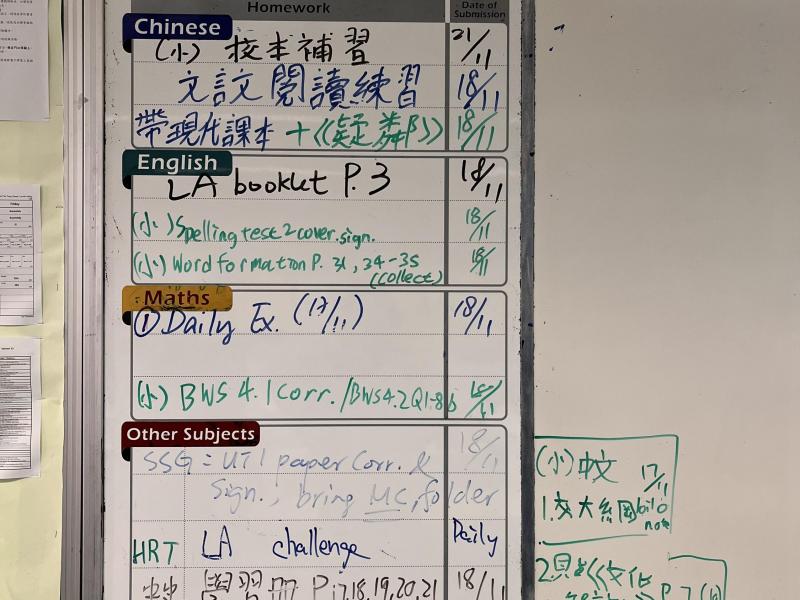 Homework
Date of Submission
Chinese
(小) 校本補習 21/11
文言文閱讀練習 18/11
帶現代課本 + 18/11
English
LA booklet P.3 18/11
(小) Spelling test 2 cover. sign. 18/11
(小) Word formation P. 31, 34-35 18/11
(collect)
Maths
① Daily Ex. (17/11) 18/11
(小) BWS 4.1 Corr. / BWS4.2 Q1-8 18/11
Other Subjects
SSG = UT1 paper Corr. & 18/11
Sign., bring MC, folder
HRT LA challenge Daily
學習冊 P.17,18,19,20,21 18/11
(小) 17/11
1.交大綱